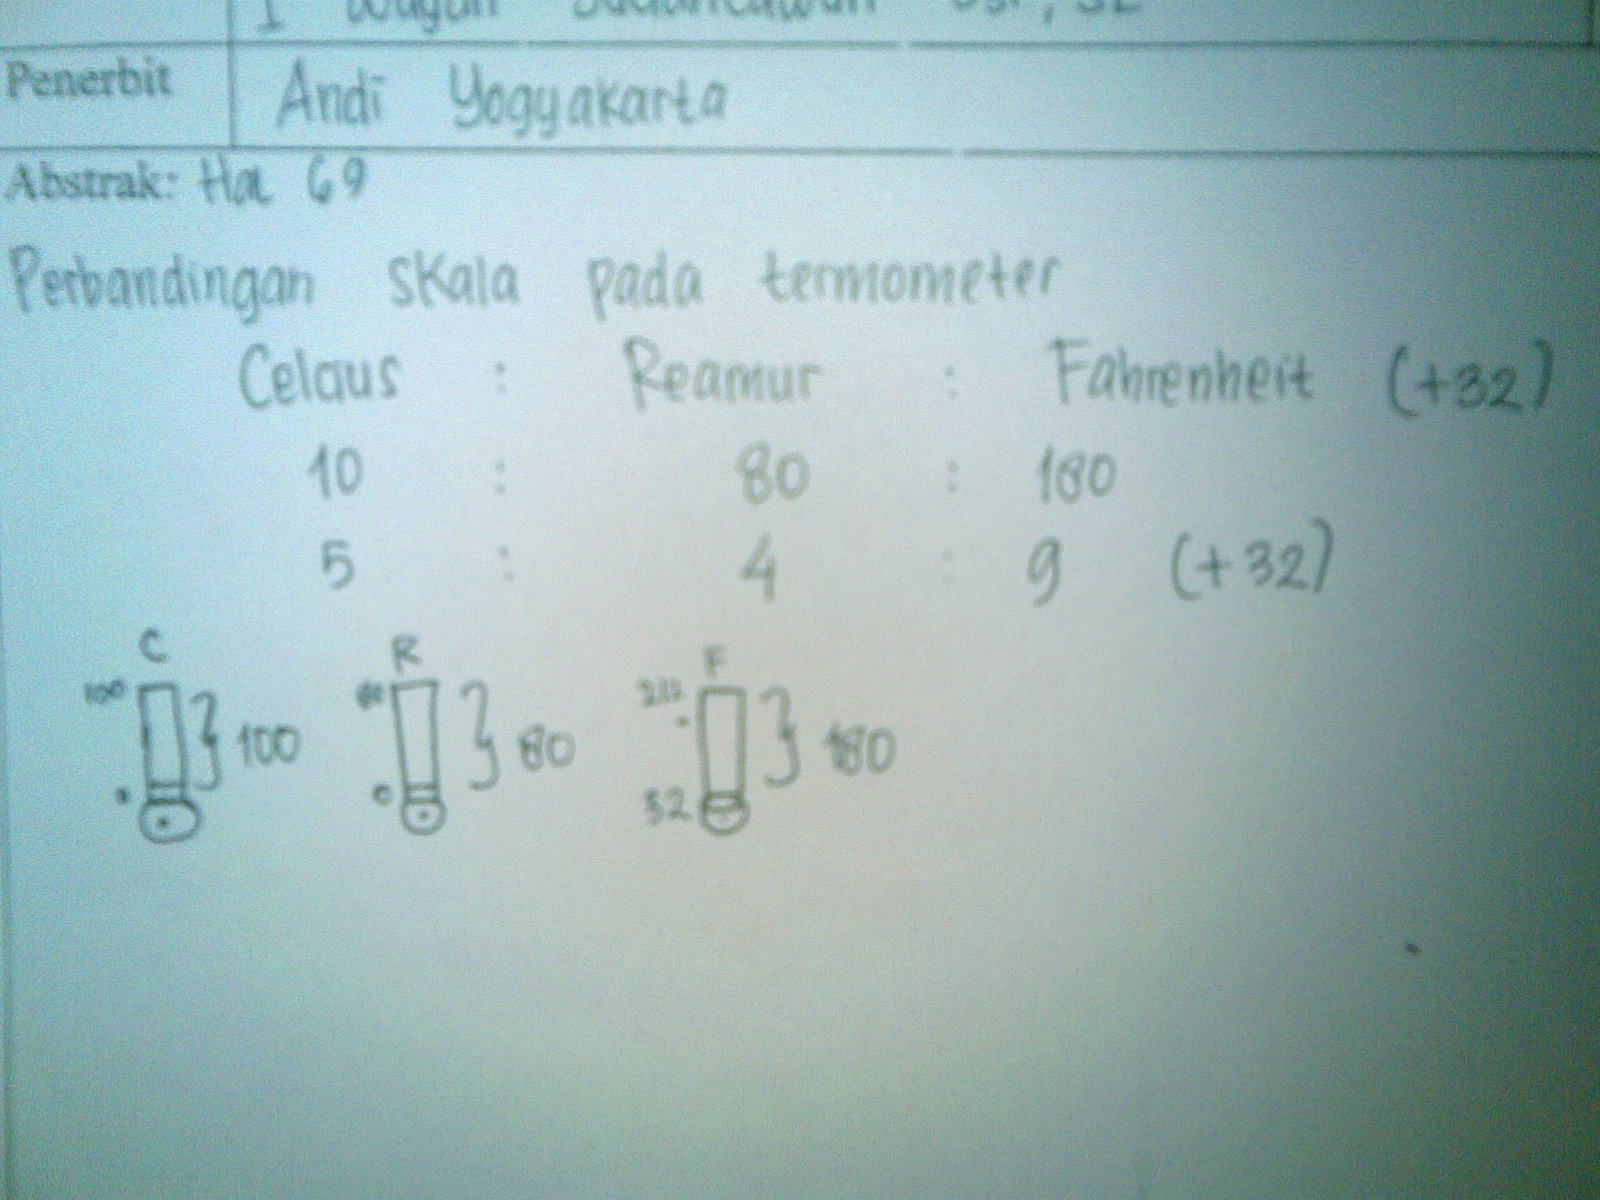 I Wayan
Penerbit Andi Yogyakarta
Abstrak: Hal 69
Perbandingan skala pada termometer
Celcius : Reamur : Fahrenheit (+32)
10 : 80 : 180
5 : 4 : 9 (+32)
C R F
100 100 80 80 212 180
0 0 32